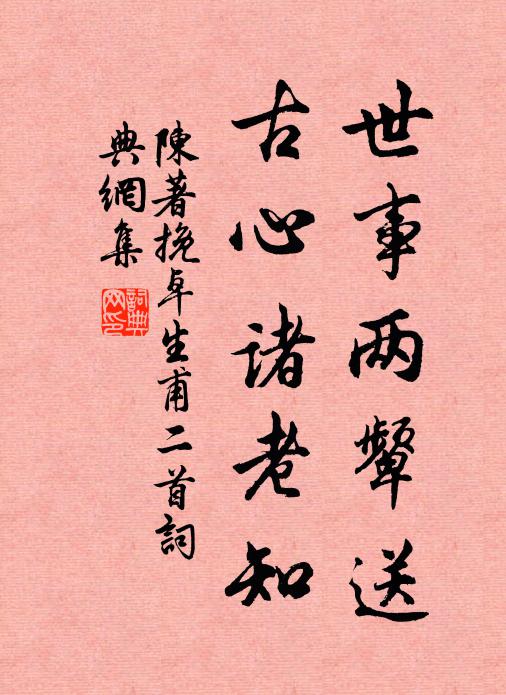 世事两颦送
古心諸老知
陳著挽卓生甫二首詞
典網集
詞典网印